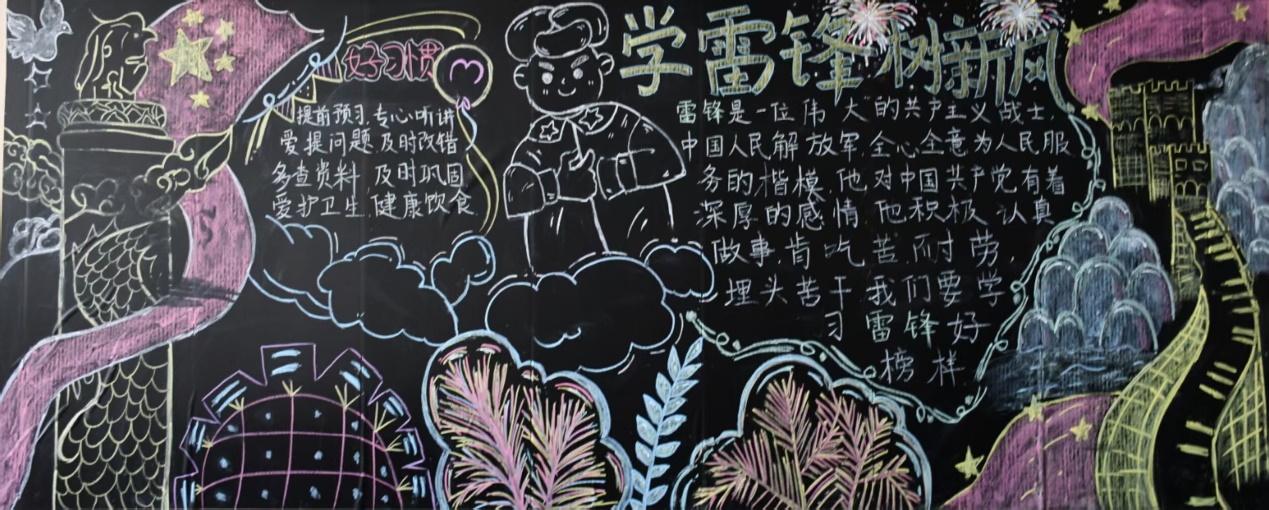 学雷锋树新风
好习惯
提前预习 专心听讲
爱提问题 及时改错
多查资料 及时巩固
爱护卫生 健康饮食
雷锋是一位伟大的共产主义战士,
中国人民解放军,全心全意为人民服
务的楷模,他对中国共产党有着
深厚的感情,他积极认真
做事,肯吃苦,耐劳,
埋头苦干,我们要学
习雷锋好
榜样